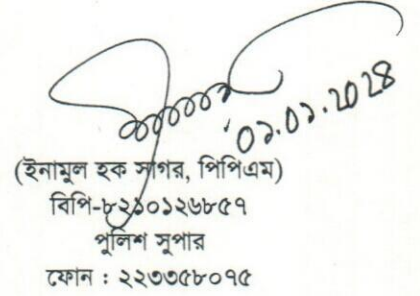 ০১.০১.২০২৪
(ইনামুল হক সাগর, পিপিএম)
বিপি-৮২১০১২৬৮৫৭
পুলিশ সুপার
ফোন : ২২৩৩৫৮০৭৫